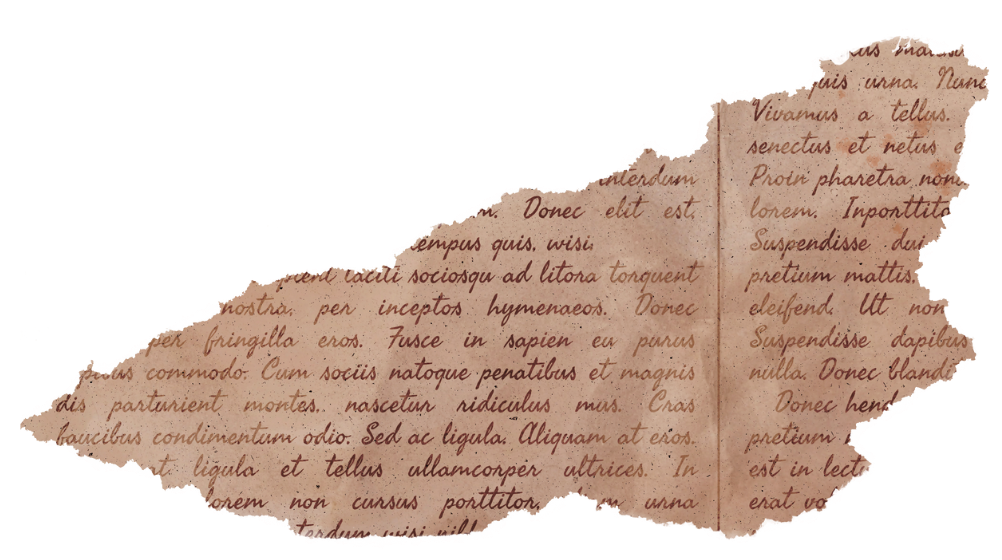 interdum
Donec elit est.
tempus quis, wisi.
taciti sociosqu ad litora torquent
nostra, per inceptos hymenaeos. Donec
per fringilla eros. Fusce in sapien eu purus
commodo. Cum sociis natoque penatibus et magnis
dis parturient montes, nascetur ridiculus mus. Cras
faucibus condimentum odio. Sed ac ligula. Aliquam at eros.
ligula et tellus ullamcorper ultrices. In
lorem non cursus porttitor, urna
urna. Nunc
Vivamus a tellus.
senectus et netus e
Proin pharetra non
lorem. Inporttito
Suspendisse dui
pretium mattis.
eleifend. Ut non
Suspendisse dapibus
nulla. Donec blandi
Donec hend
pretium
est in lect
erat vo